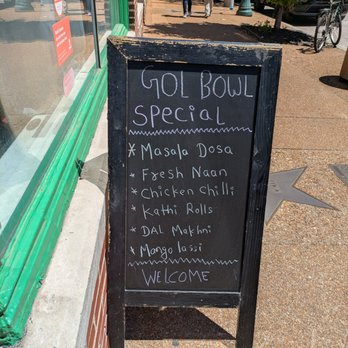 GOL BOWL
SPECIAL
* Masala Dosa
* Fresh Naan
* Chicken Chilli
* Kathi Rolls
* DAL Makhni
* Mango lassi
WELCOME